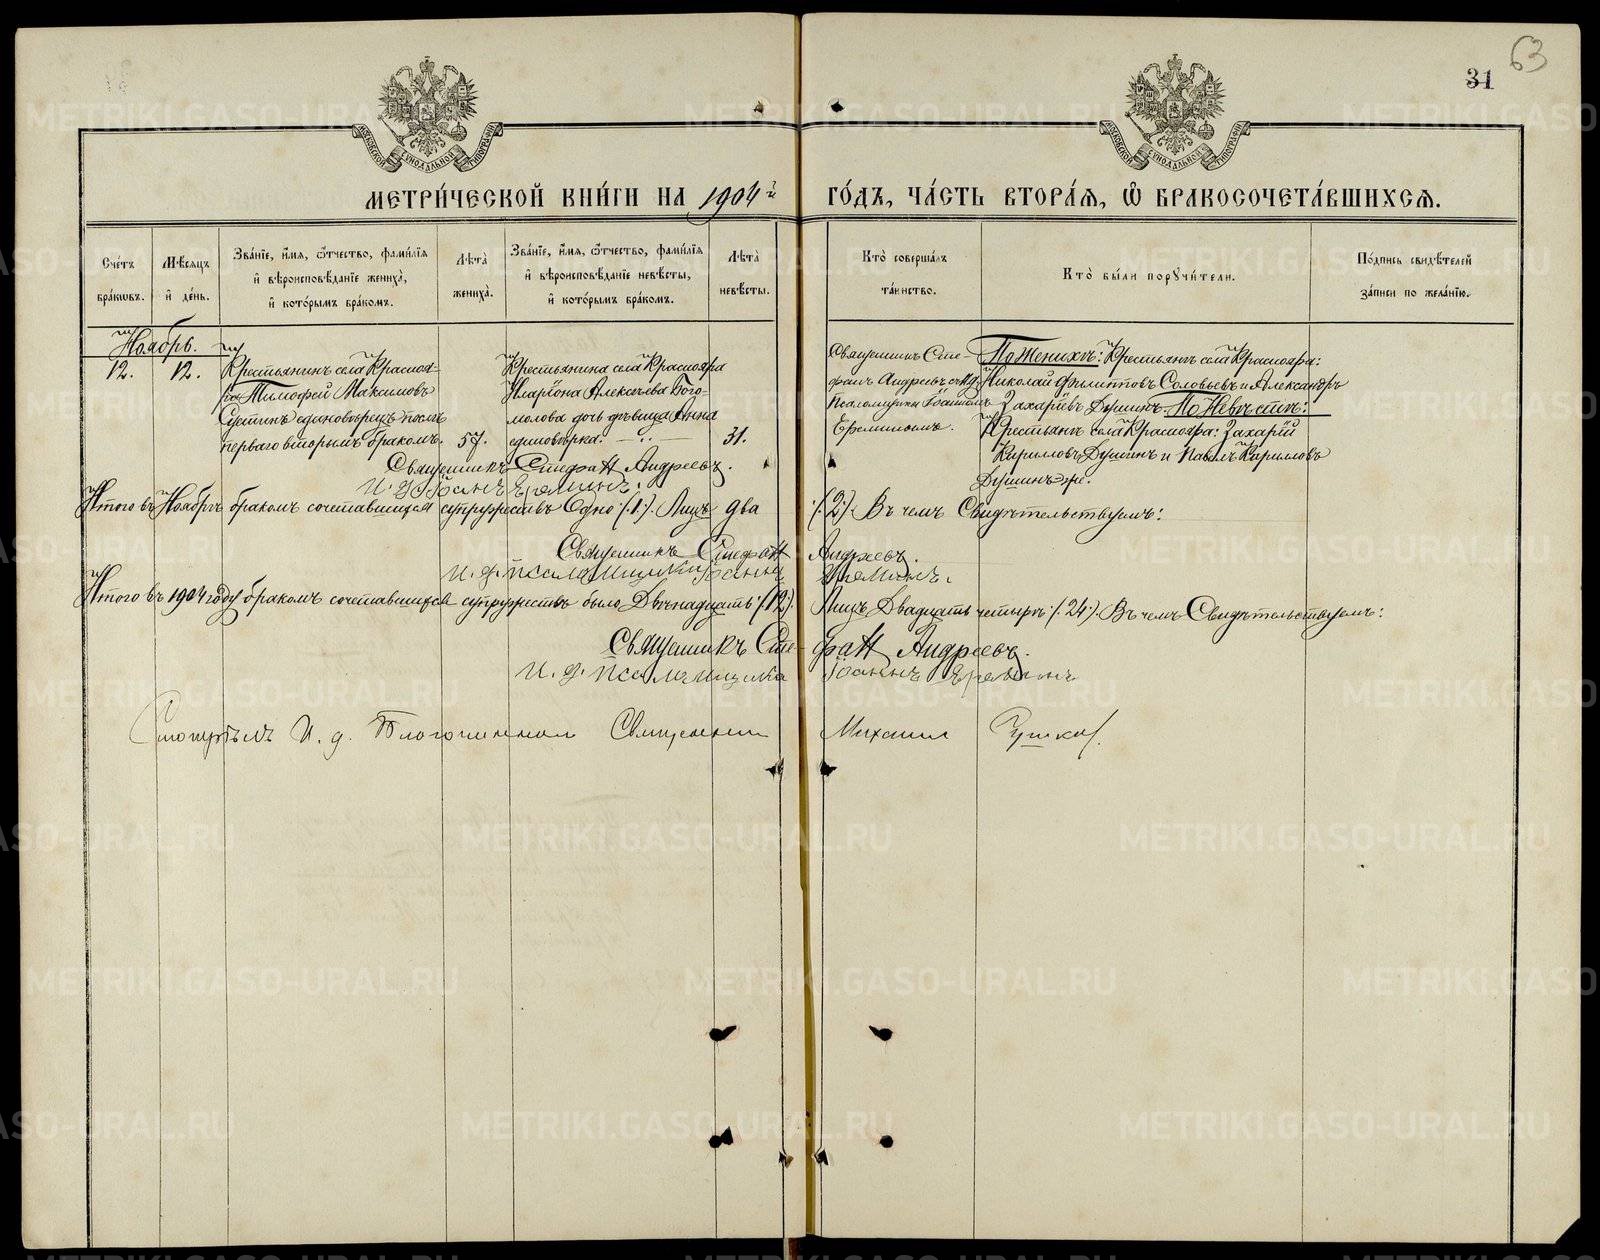 63
31
МОСКОВСКОЙ СѴНОДАЛЬНОЙ ТИПОГРАФІИ
МОСКОВСКОЙ СѴНОДАЛЬНОЙ ТИПОГРАФІИ
МЕТРИ́ЧЕСКОЙ КНИ́ГИ НА 1904й ГО́ДЪ, ЧА́СТЬ ВТОРА́Я, Ѽ БРАКОСОЧЕТА́ВШИХСЯ.
Сче́тъ бра́кωвъ.
Мѣ́сяцъ и҆ де́нь.
Зва́нїе, и҆́мя, ѻ҆́тчество, фами́лїя и҆ вѣроисповѣ́данїе жениха̀, и҆ кото́рымъ бра́комъ.
Лѣта̀ жениха̀.
Зва́нїе, и҆́мя, ѻ҆́тчество, фами́лїя и҆ вѣроисповѣ́данїе невѣ́сты, и҆ кото́рымъ бра́комъ.
Лѣта̀ невѣ́сты.
Кто̀ соверша́лъ та́инство.
Кто̀ бы́ли порꙋчи́тели.
По́дпись свидѣ́телей за́писи по жела́нїю.
Ноябрь.
12.
12.
Крестьянинъ села Краснояра
Тимофей Максимовъ
единовѣрецъ послѣ
перваго вторымъ бракомъ.
57.
Крестьянина села Краснояра
Иларіона Алексѣева Бого-
молова дочь дѣвица Анна
единовѣрка.
31.
Священникъ Сте-
фанъ Андреевъ с и. д.
Псаломщика Іоанномъ
Ереминымъ.
По Женихѣ: Крестьяне села Краснояра:
Николай Филипповъ Соловьевъ и Александръ
Захаріевъ Душинъ. По Невѣстѣ:
Крестьяне села Краснояра: Захарій
Кириловъ Душинъ и Павелъ Кириловъ
Душинъ же.
Священникъ Стефанъ Андреевъ.
И. д. Іоаннъ Ереминъ.
Итого въ Ноябрѣ бракомъ сочетавшихся супружествъ Одно (1). Лицъ два (2). Въ чемъ Свидѣтельствуемъ:
Священникъ Стефанъ Андреевъ.
И. д. псаломщика Іоаннъ Ереминъ.
Итого въ 1904 году бракомъ сочетавшихся супружествъ было Двѣнадцать (12). Лицъ Двадцать четыре (24). Въ чемъ Свидѣтельствуемъ:
Священникъ Стефанъ Андреевъ.
И. д. псаломщика Іоаннъ Ереминъ
Смотрѣлъ И. д. Благочиннаго Священникъ Михаилъ
METRIKI.GASO-URAL.RU